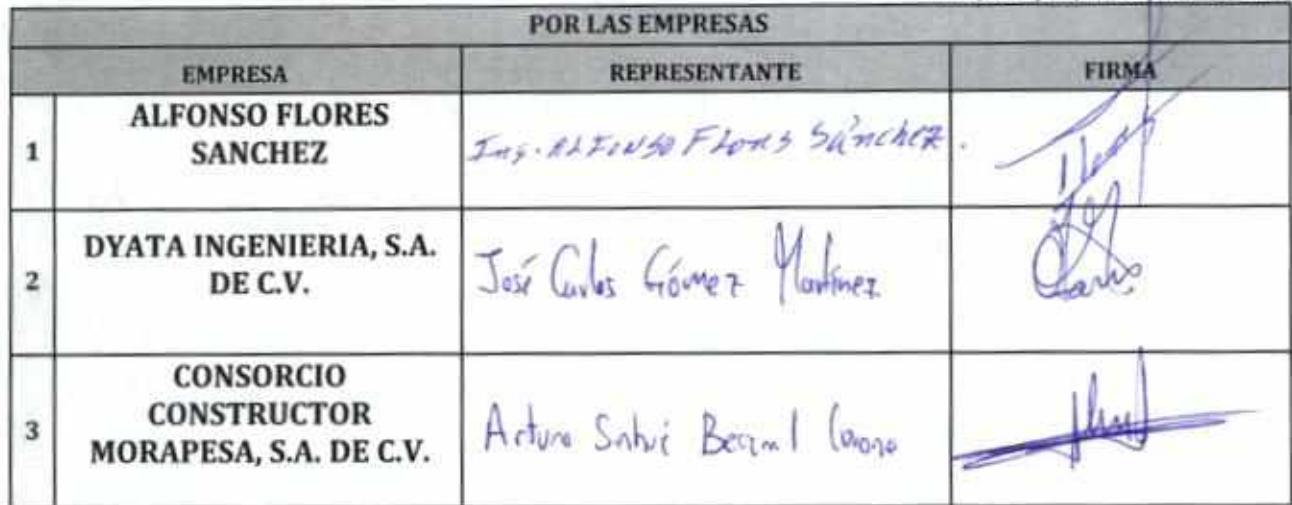 POR LAS EMPRESAS
EMPRESA REPRESENTANTE FIRMA
1 ALFONSO FLORES
SANCHEZ
Ing. ALFONSO Flores Sánchez.
2 DYATA INGENIERIA, S.A.
DE C.V.
José Carlos Gómez Martínez
3 CONSORCIO
CONSTRUCTOR
MORAPESA, S.A. DE C.V.
Arturo